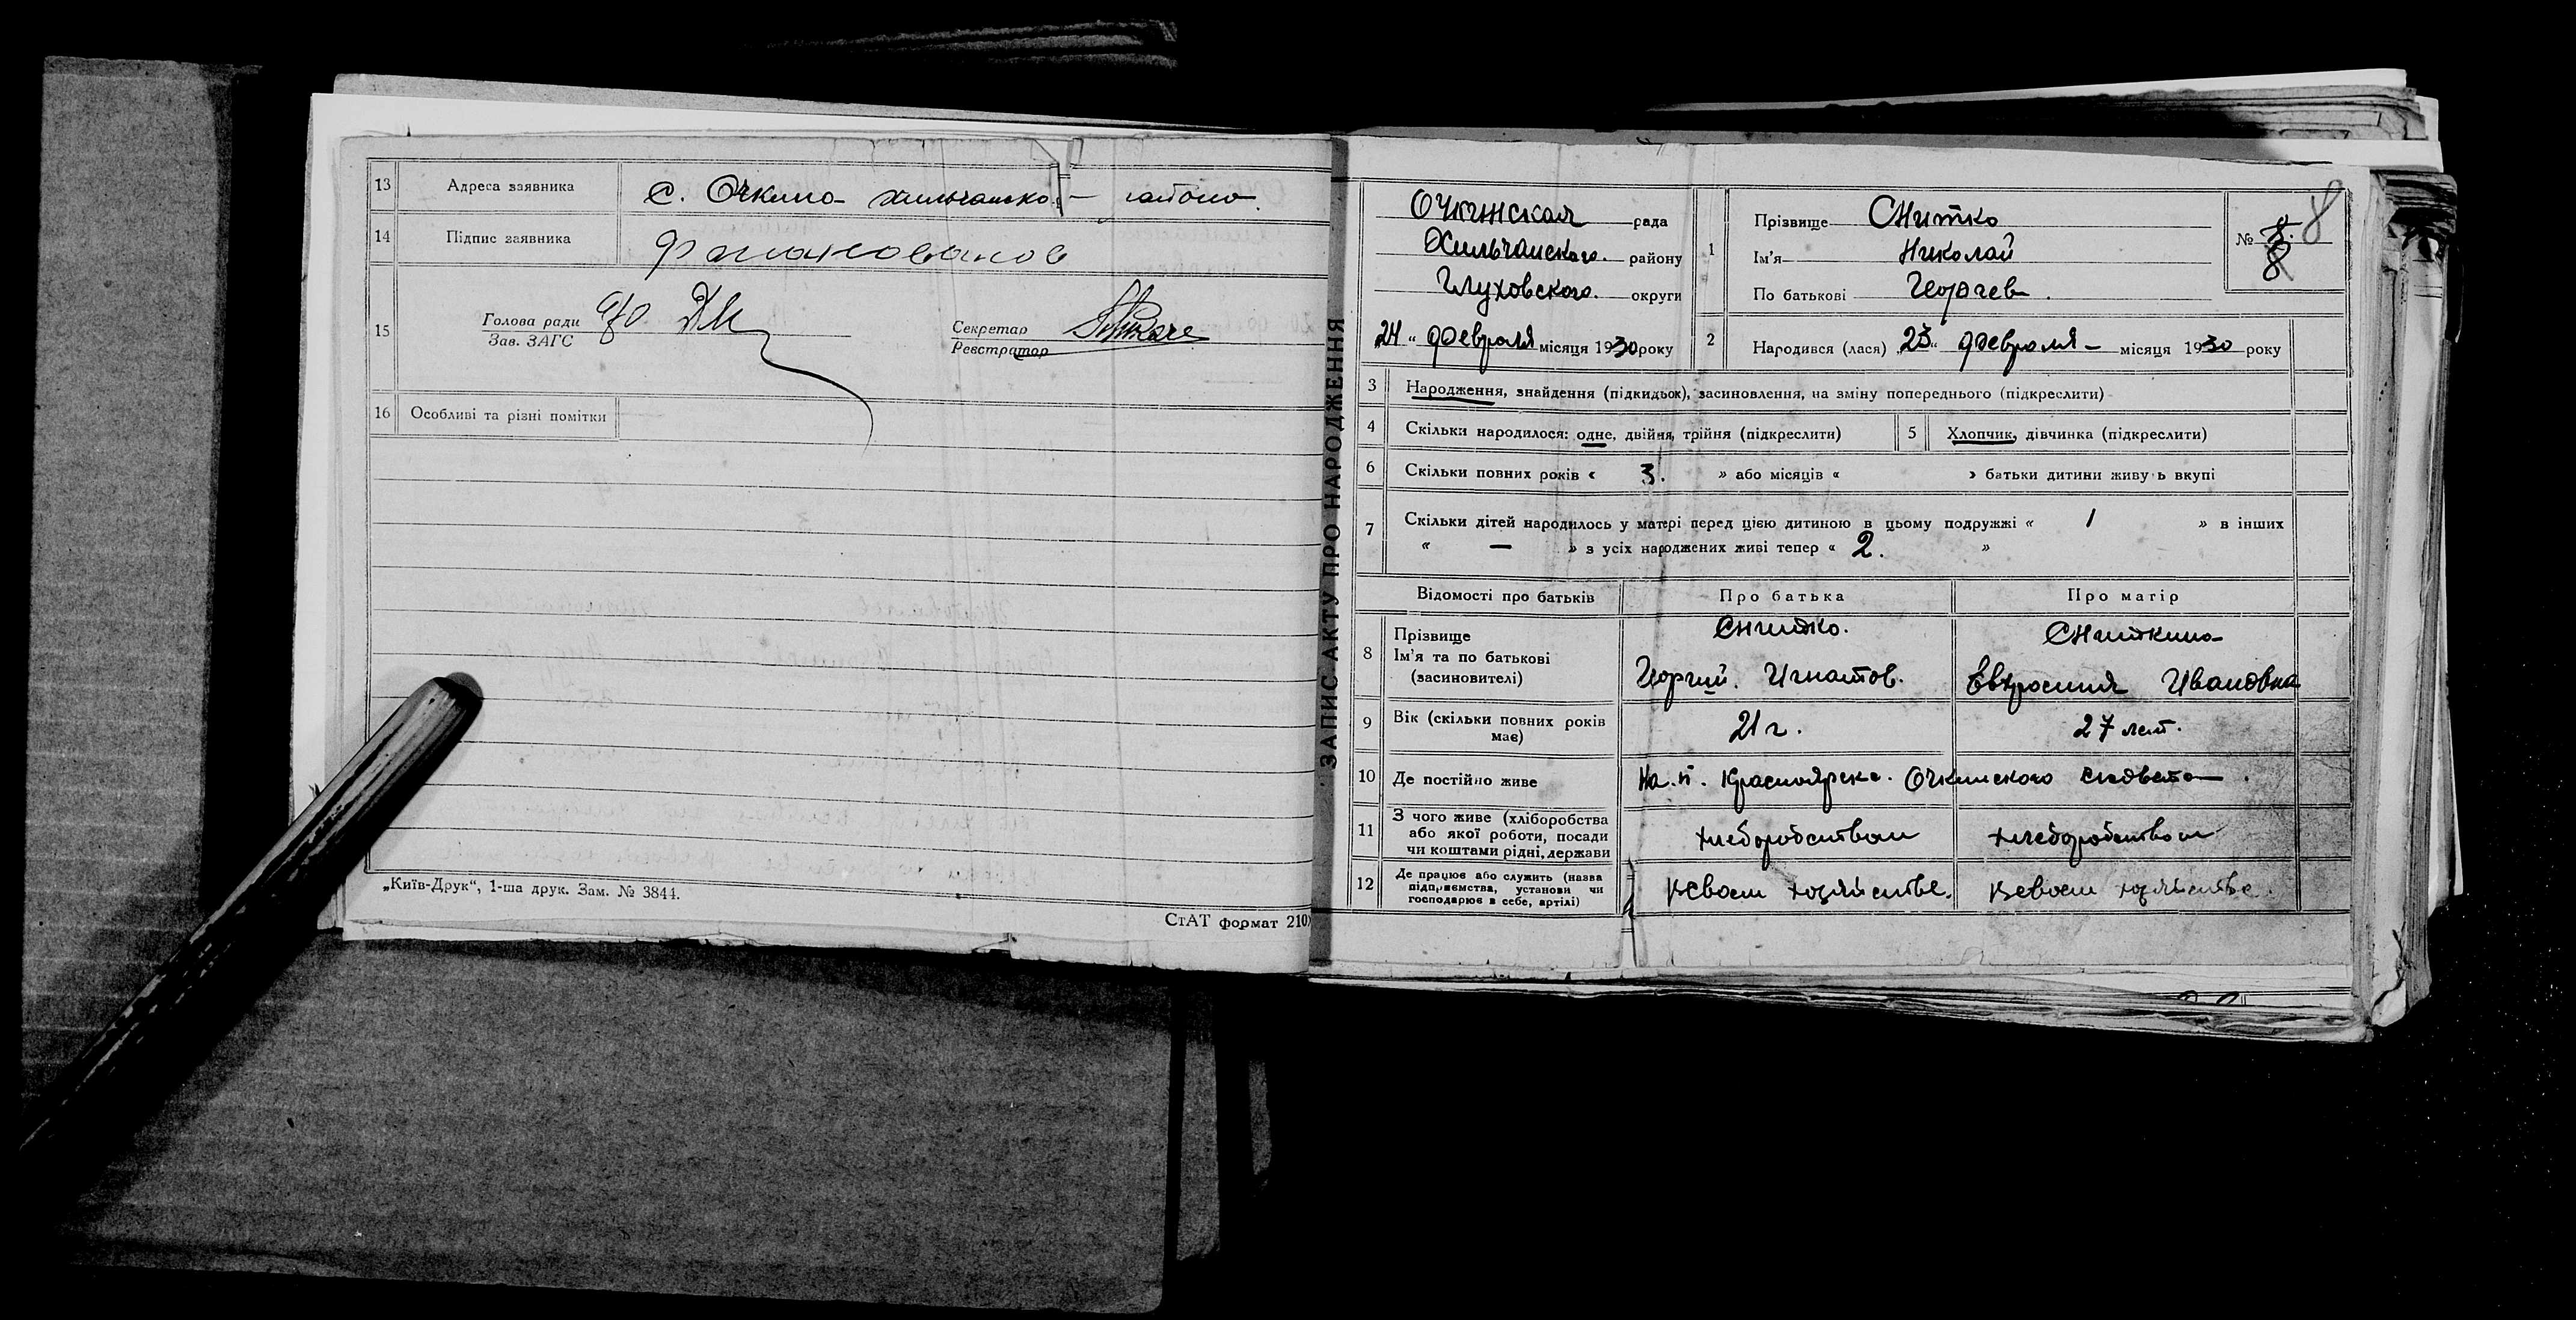 13 Адреса заявника с. Очкино Хильчанско - района.
14 Підпис заявника
15 Голова ради
Зав. ЗАГС
Секретар
Реєстратор
16 Особливі та різні помітки
„Київ-Друк“, 1-ша друк. Зам. № 3844.
СтАТ формат 210
ЗАПИС АКТУ ПРО НАРОДЖЕННЯ
Очкинская рада
Хильчанского. району
Глуховского. округи
„24“ Февраля місяця 1930 року
1 Прізвище Снитко
Ім'я Николай
По батькові Георгиев.
№ 8. 8
8
2 Народився (лася) „23“ Февраля місяця 1930 року
3 Народження, знайдення (підкидьок), засиновлення, на зміну попереднього (підкреслити)
4 Скільки народилося: одне, двійня, трійня (підкреслити)
5 Хлопчик, дівчинка (підкреслити)
6 Скільки повних років « 3. » або місяців « » батьки дитини живуть вкупі
7 Скільки дітей народилось у матері перед цією дитиною в цьому подружжі « 1 » в інших
« — » з усіх народжених живі тепер « 2. »
Відомості про батьків Про батька Про матір
8 Прізвище
Ім'я та по батькові
(засиновителі)
Снитко.
Георгий. Игнатов.
Сниткина
Евфросиния Ивановна
9 Вік (скільки повних років
має)
21 г.
27 лет.
10 Де постійно живе На. п. Красноярска. Очкинского сельвета.
11 З чого живе (хліборобства
або якої роботи, посади
чи коштами рідні, держави
хлеборобством
хлеборобством
12 Де працює або служить (назва
підприємства, установи чи
господарює в себе, артілі)
всвоем хозяйстве.
всвоем хозяйстве.